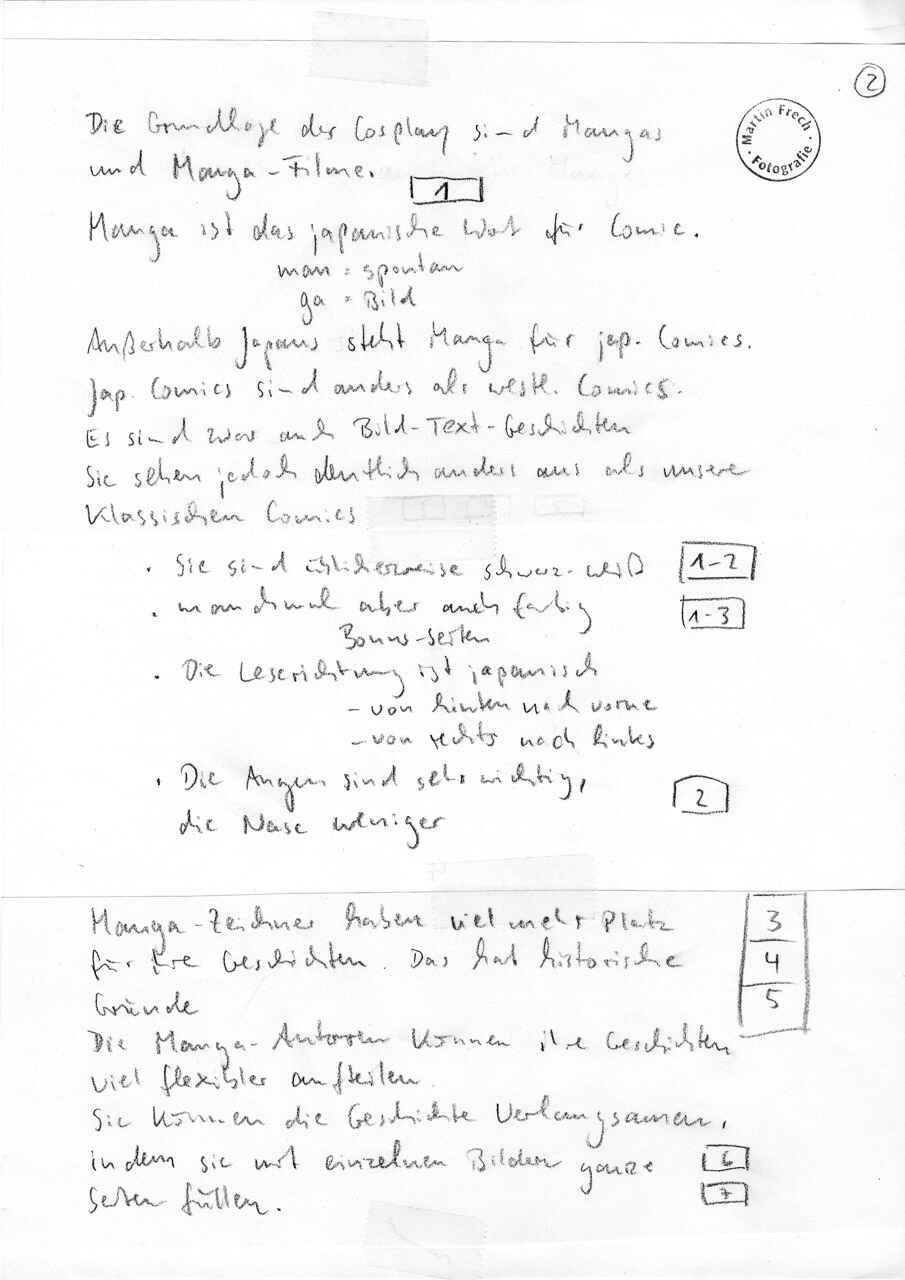 2
Martin Frech · Fotografie ·
Die Grundlage des Cosplay sind Mangas
und Manga-Filme.
1
Manga ist das japanische Wort für Comic.
man = spontan
ga = Bild
Außerhalb Japans steht Manga für jap. Comics.
Jap. Comics sind anders als westl. Comics.
Es sind zwar auch Bild-Text-Geschichten
Sie sehen jedoch deutlich anders aus als unsere
klassischen Comics
· Sie sind üblicherweise schwarz-weiß 1-2
· manchmal aber auch farbig 1-3
Bonus-Seiten
· Die Leserichtung ist japanisch
- von hinten nach vorne
- von rechts nach links
· Die Augen sind sehr wichtig,
die Nase weniger 2
Manga-Zeichner haben viel mehr Platz 3
für ihre Geschichten. Das hat historische 4
Gründe 5
Die Manga-Autoren können ihre Geschichten
viel flexibler aufteilen.
Sie können die Geschichte verlangsamen,
indem sie mit einzelnen Bildern ganze 6
Seiten füllen. 7